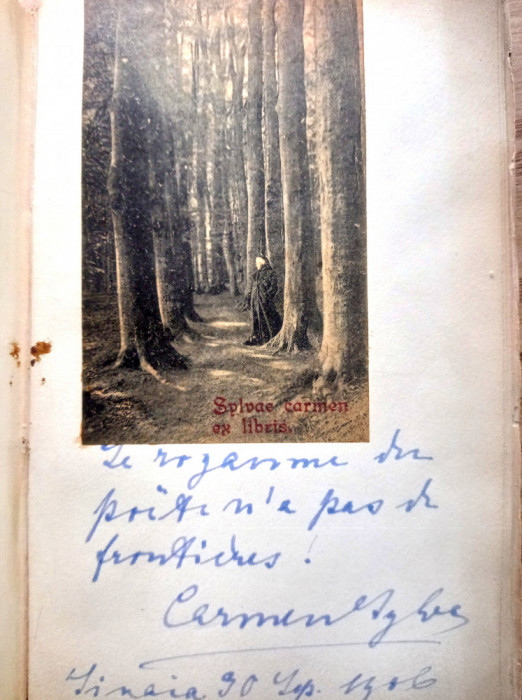 Sylvae carmen
ex libris.
Le royaume du
poëte n'a pas de
frontières !
Carmen Sylva
Sinaia 30 Sep. 1906